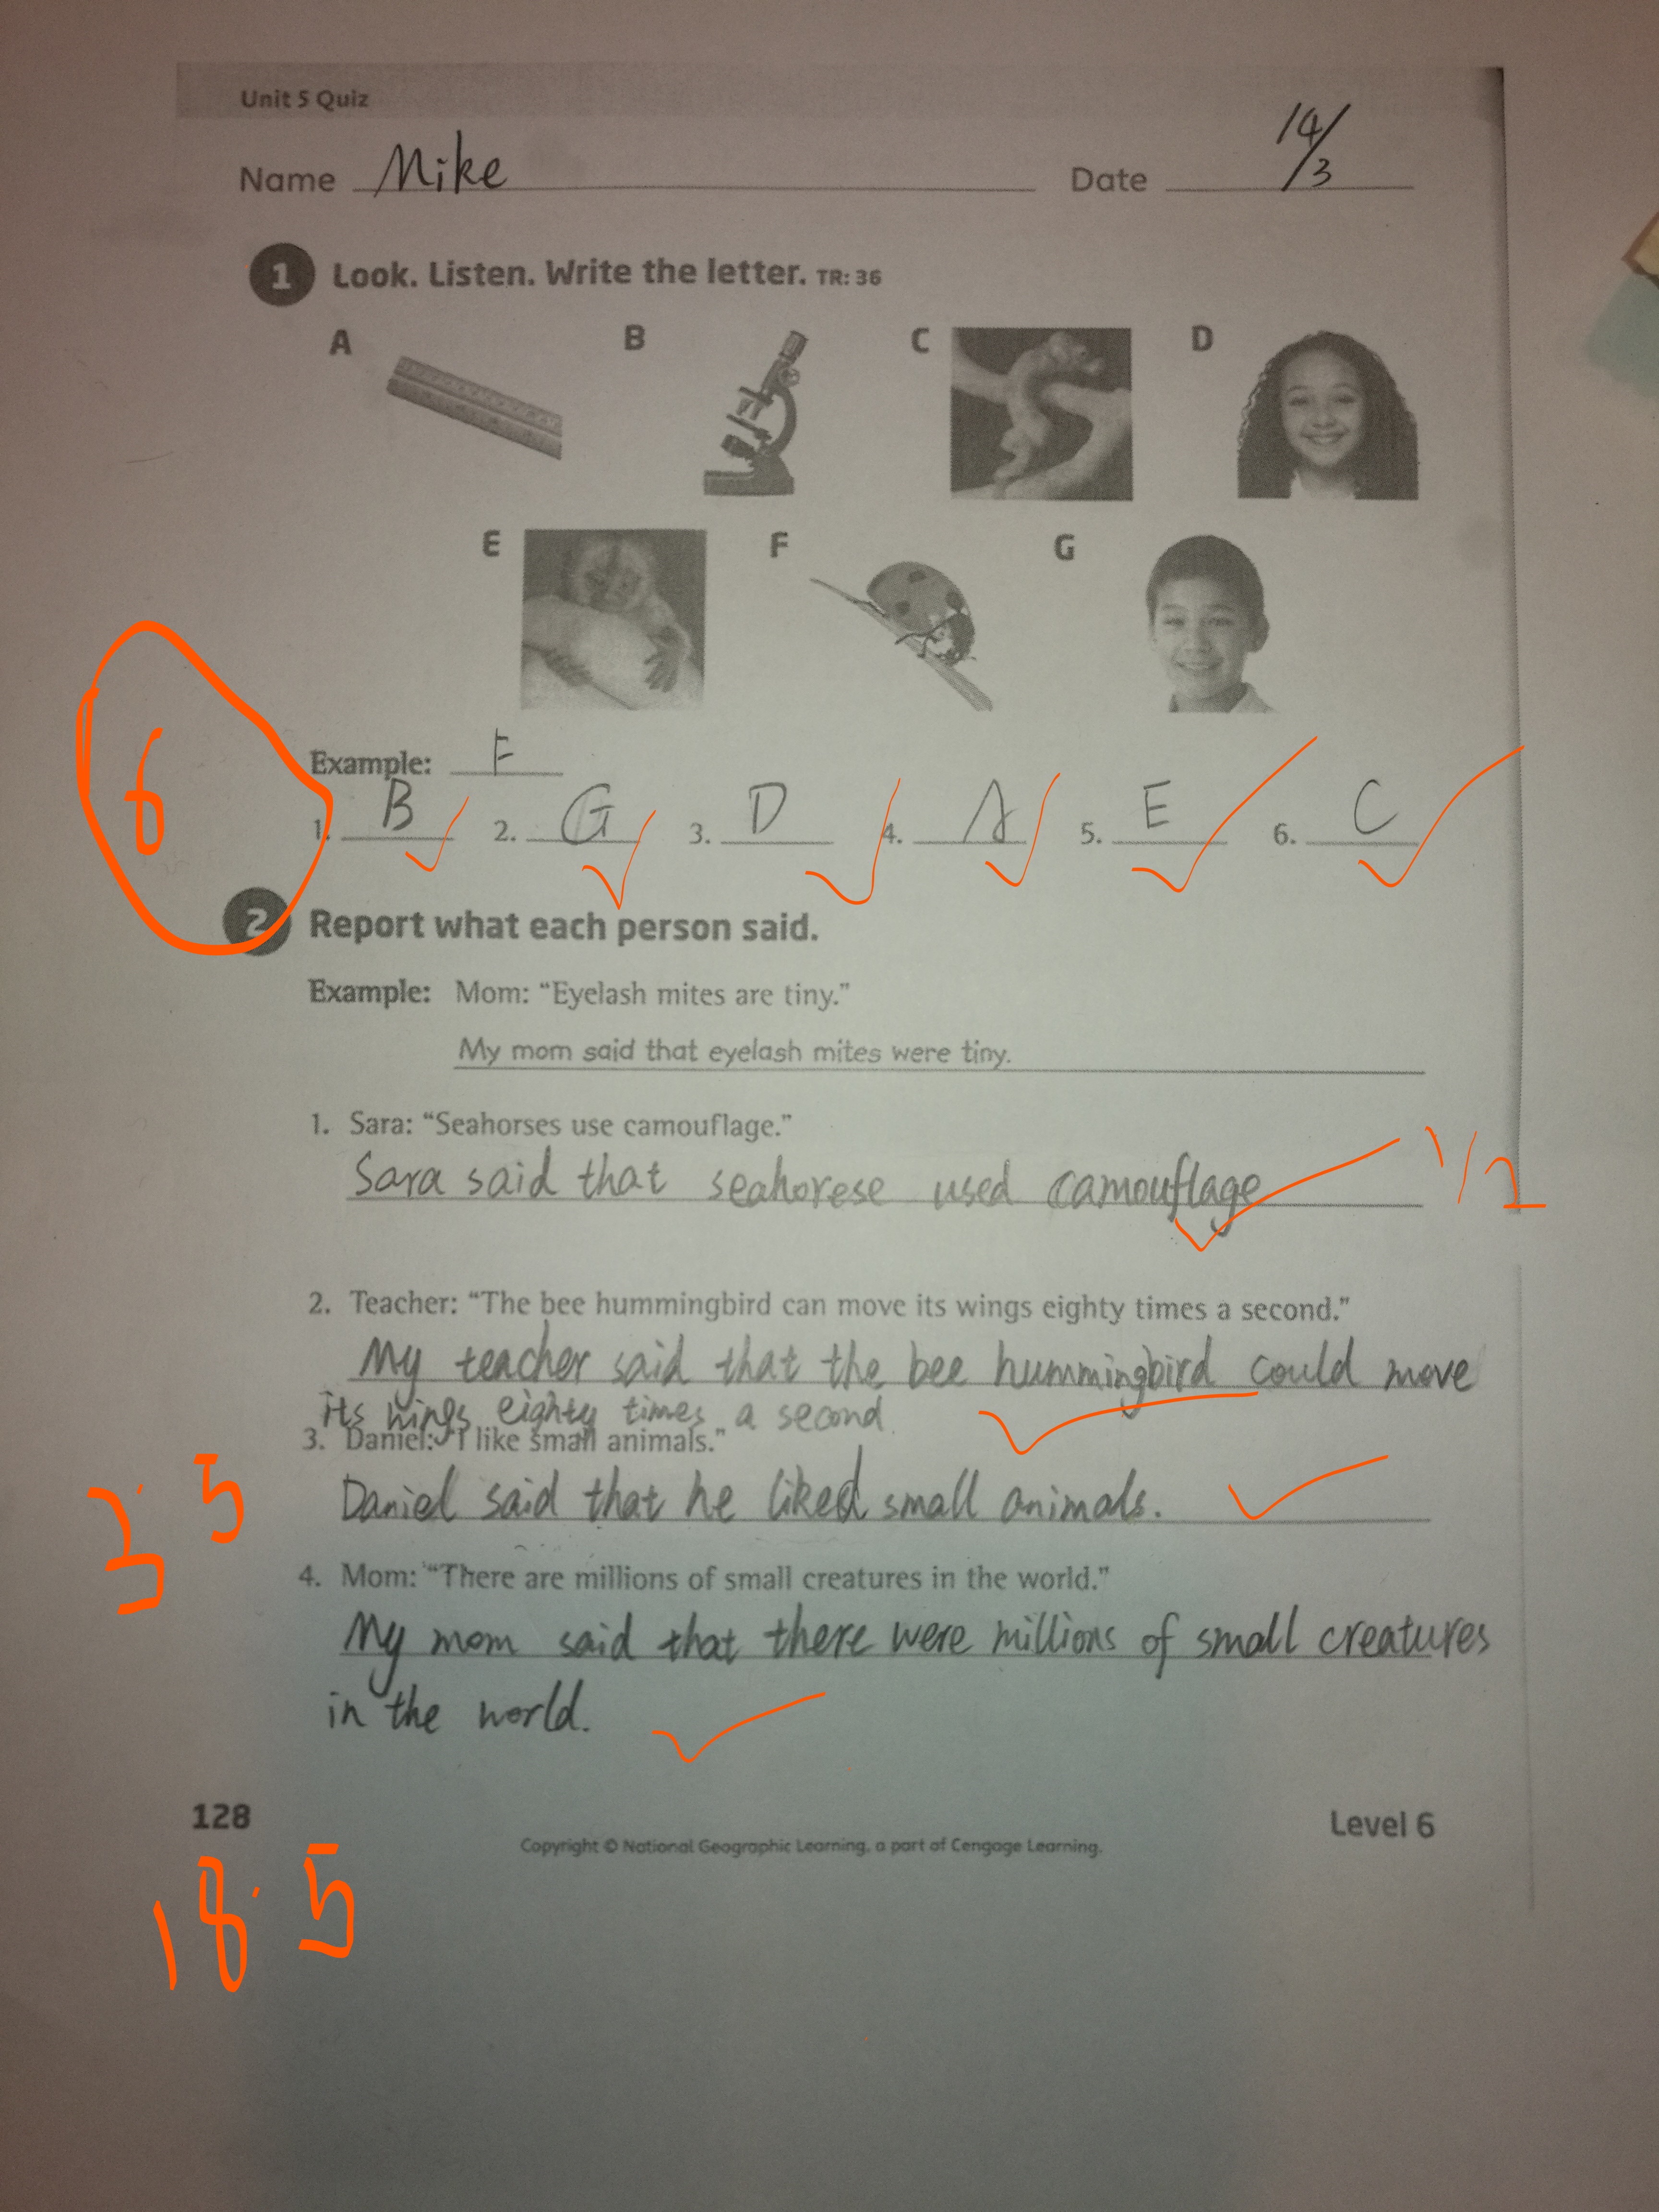 Unit 5 Quiz
Name Mike Date 14/3
1 Look. Listen. Write the letter. TR: 36
A B C D
E F G
Example: F
1. B 2. G 3. D 4. A 5. E 6. C
6
2 Report what each person said.
Example: Mom: “Eyelash mites are tiny.”
My mom said that eyelash mites were tiny.
1. Sara: “Seahorses use camouflage.”
Sara said that seahorese used camouflage 1/2
2. Teacher: “The bee hummingbird can move its wings eighty times a second.”
My teacher said that the bee hummingbird could move
its wings eighty times a second.
3. Daniel: “I like small animals.”
3.5
Daniel said that he liked small animals.
4. Mom: “There are millions of small creatures in the world.”
My mom said that there were millions of small creatures
in the world.
128 Level 6
Copyright © National Geographic Learning, a part of Cengage Learning.
18.5